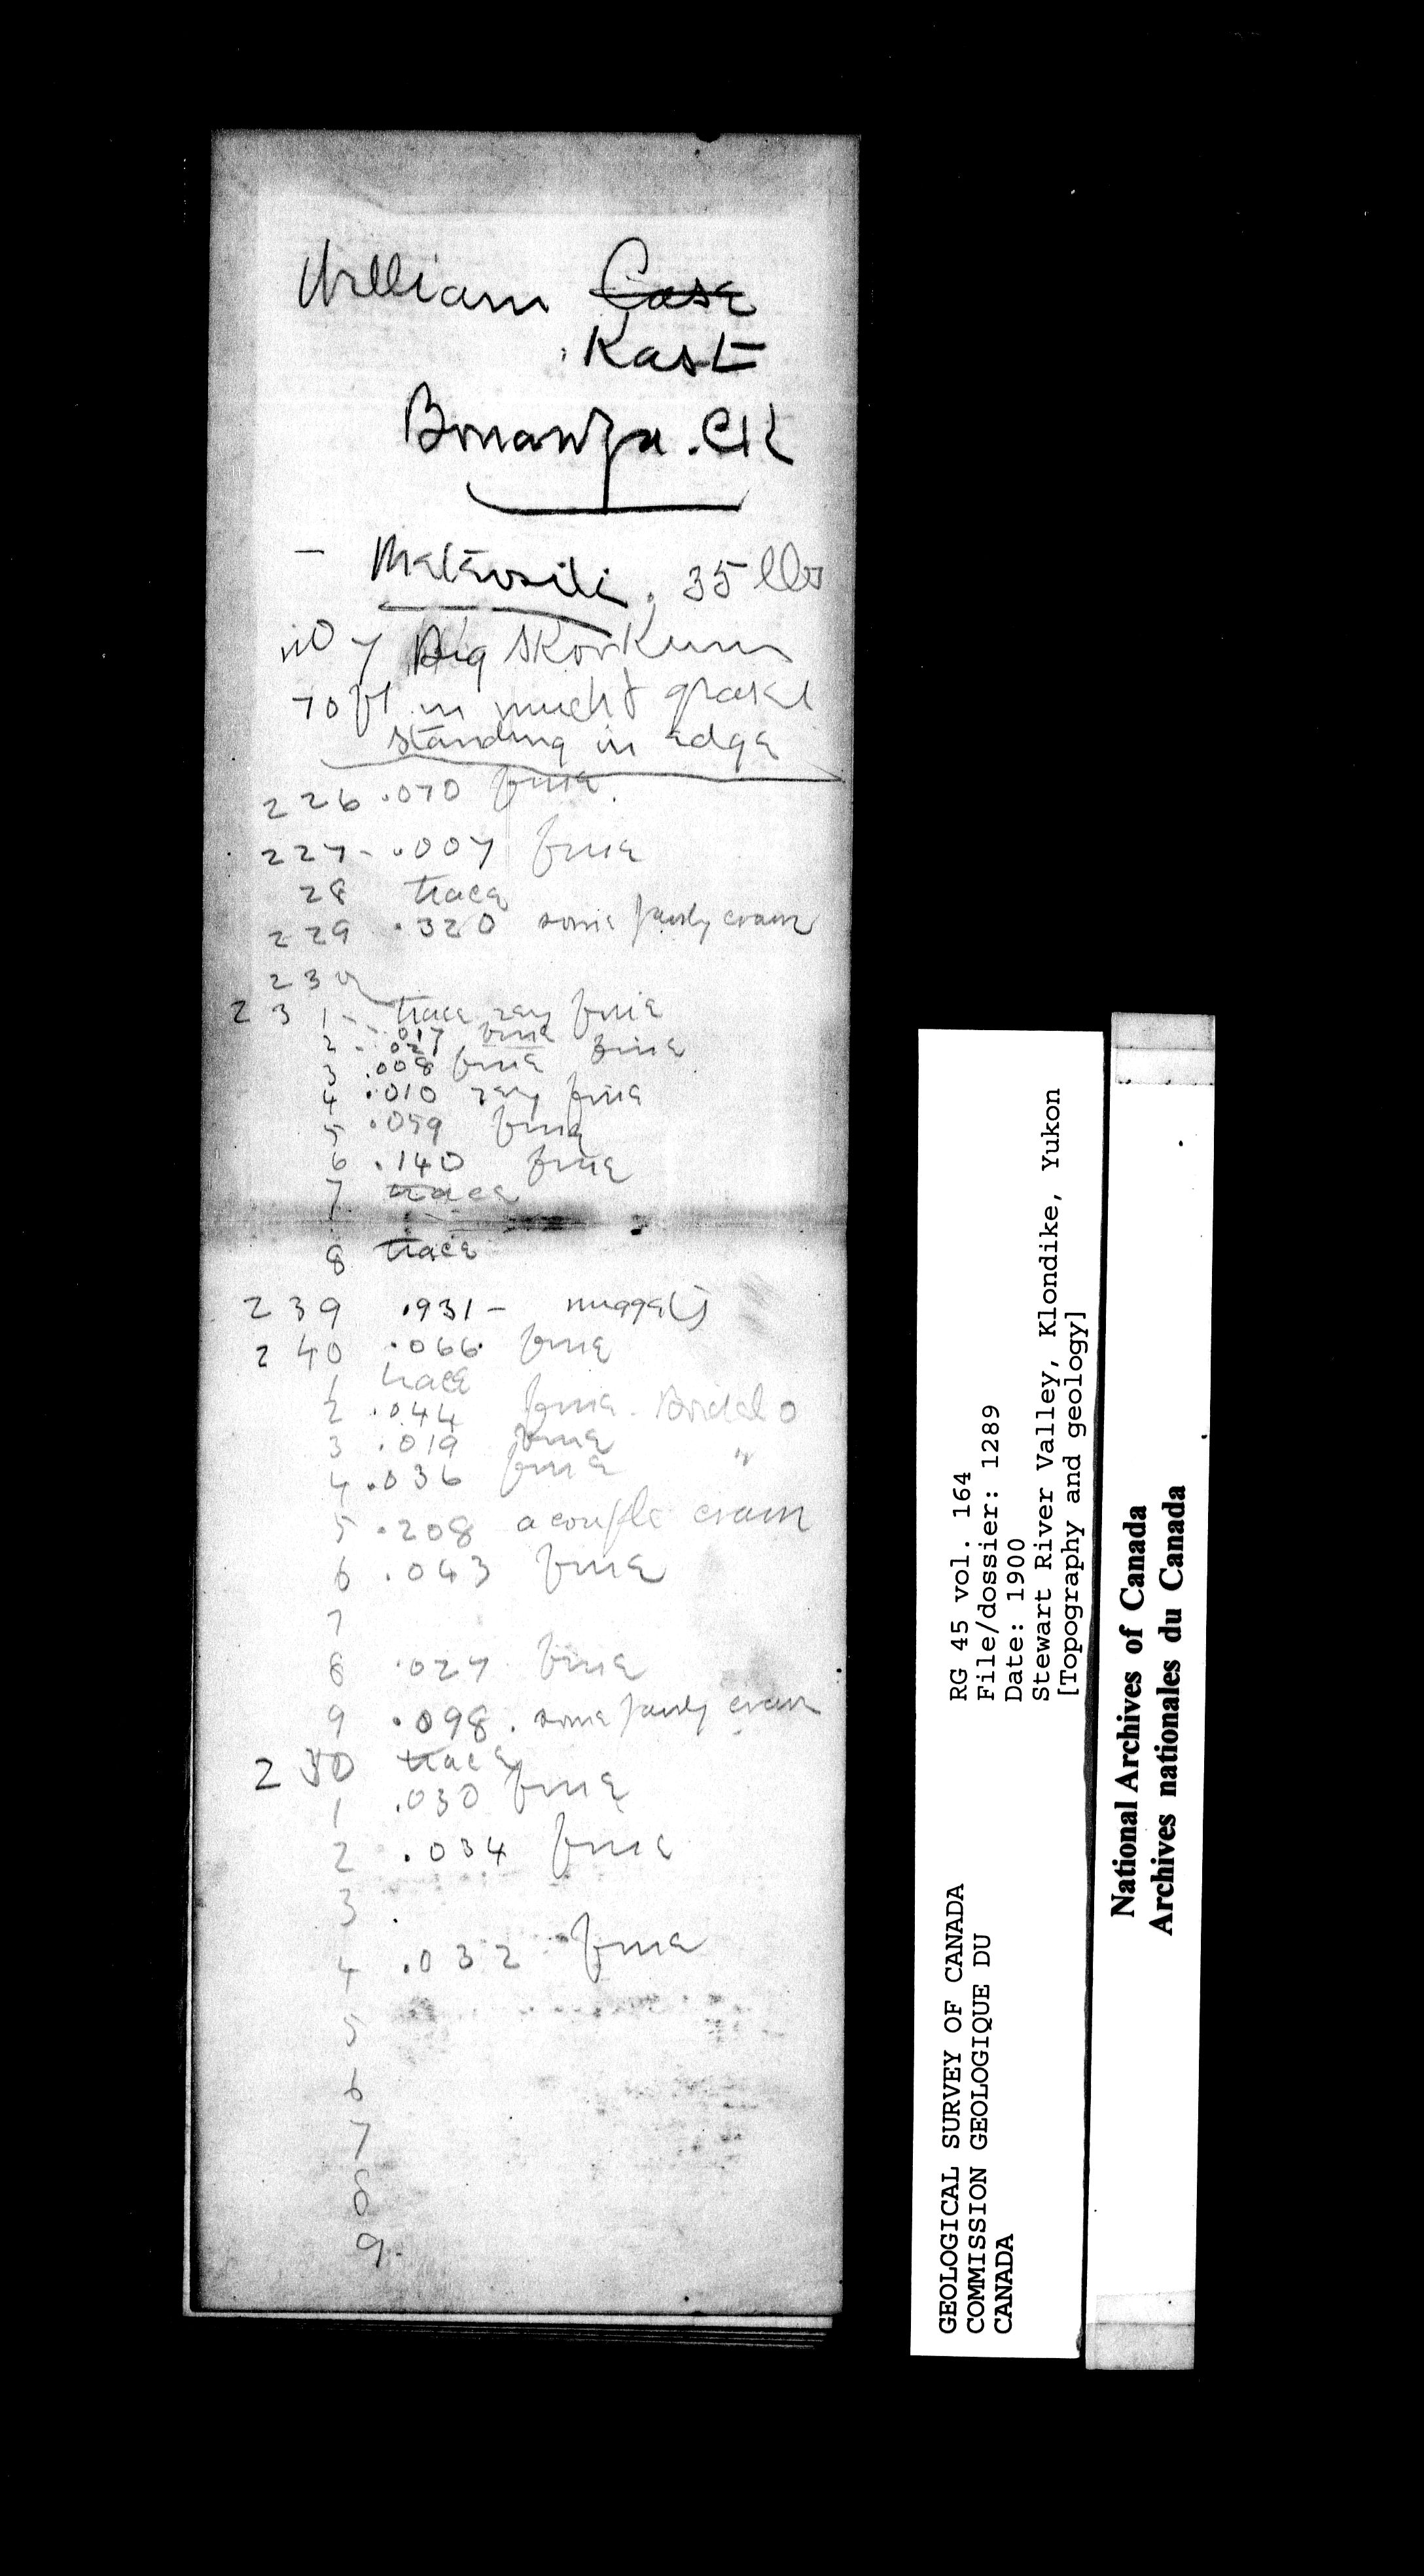 William Case
Kast
Bonanza. CK
- Meteorite. 35 lbs
no 7 Big Skookum
70 ft in muck & gravel
standing in edge
226 .070 fine
227 - .007 fine
28 trace
229 .320 some fairly coarse
230
231 - trace very fine
2 - .017 fine fine
3 .008 fine
4 .010 very fine
5 .059 fine
6 .140 fine
7 trace
8 trace
239 .931 - nuggets
240 .066 fine
1 trace
2 .044 fine
3 .019 fine "
4 .036 fine
5 .208 a couple coarse
6 .043 fine
7
8 .027 fine
9 .098 . some fairly coarse
250 trace
1 .030 fine
2 .034 fine
3 .
4 .032 fine
5
6
7
8
9
GEOLOGICAL SURVEY OF CANADA
COMMISSION GEOLOGIQUE DU
CANADA
RG 45 vol. 164
File/dossier: 1289
Date: 1900
Stewart River Valley, Klondike, Yukon
[Topography and geology]
National Archives of Canada
Archives nationales du Canada